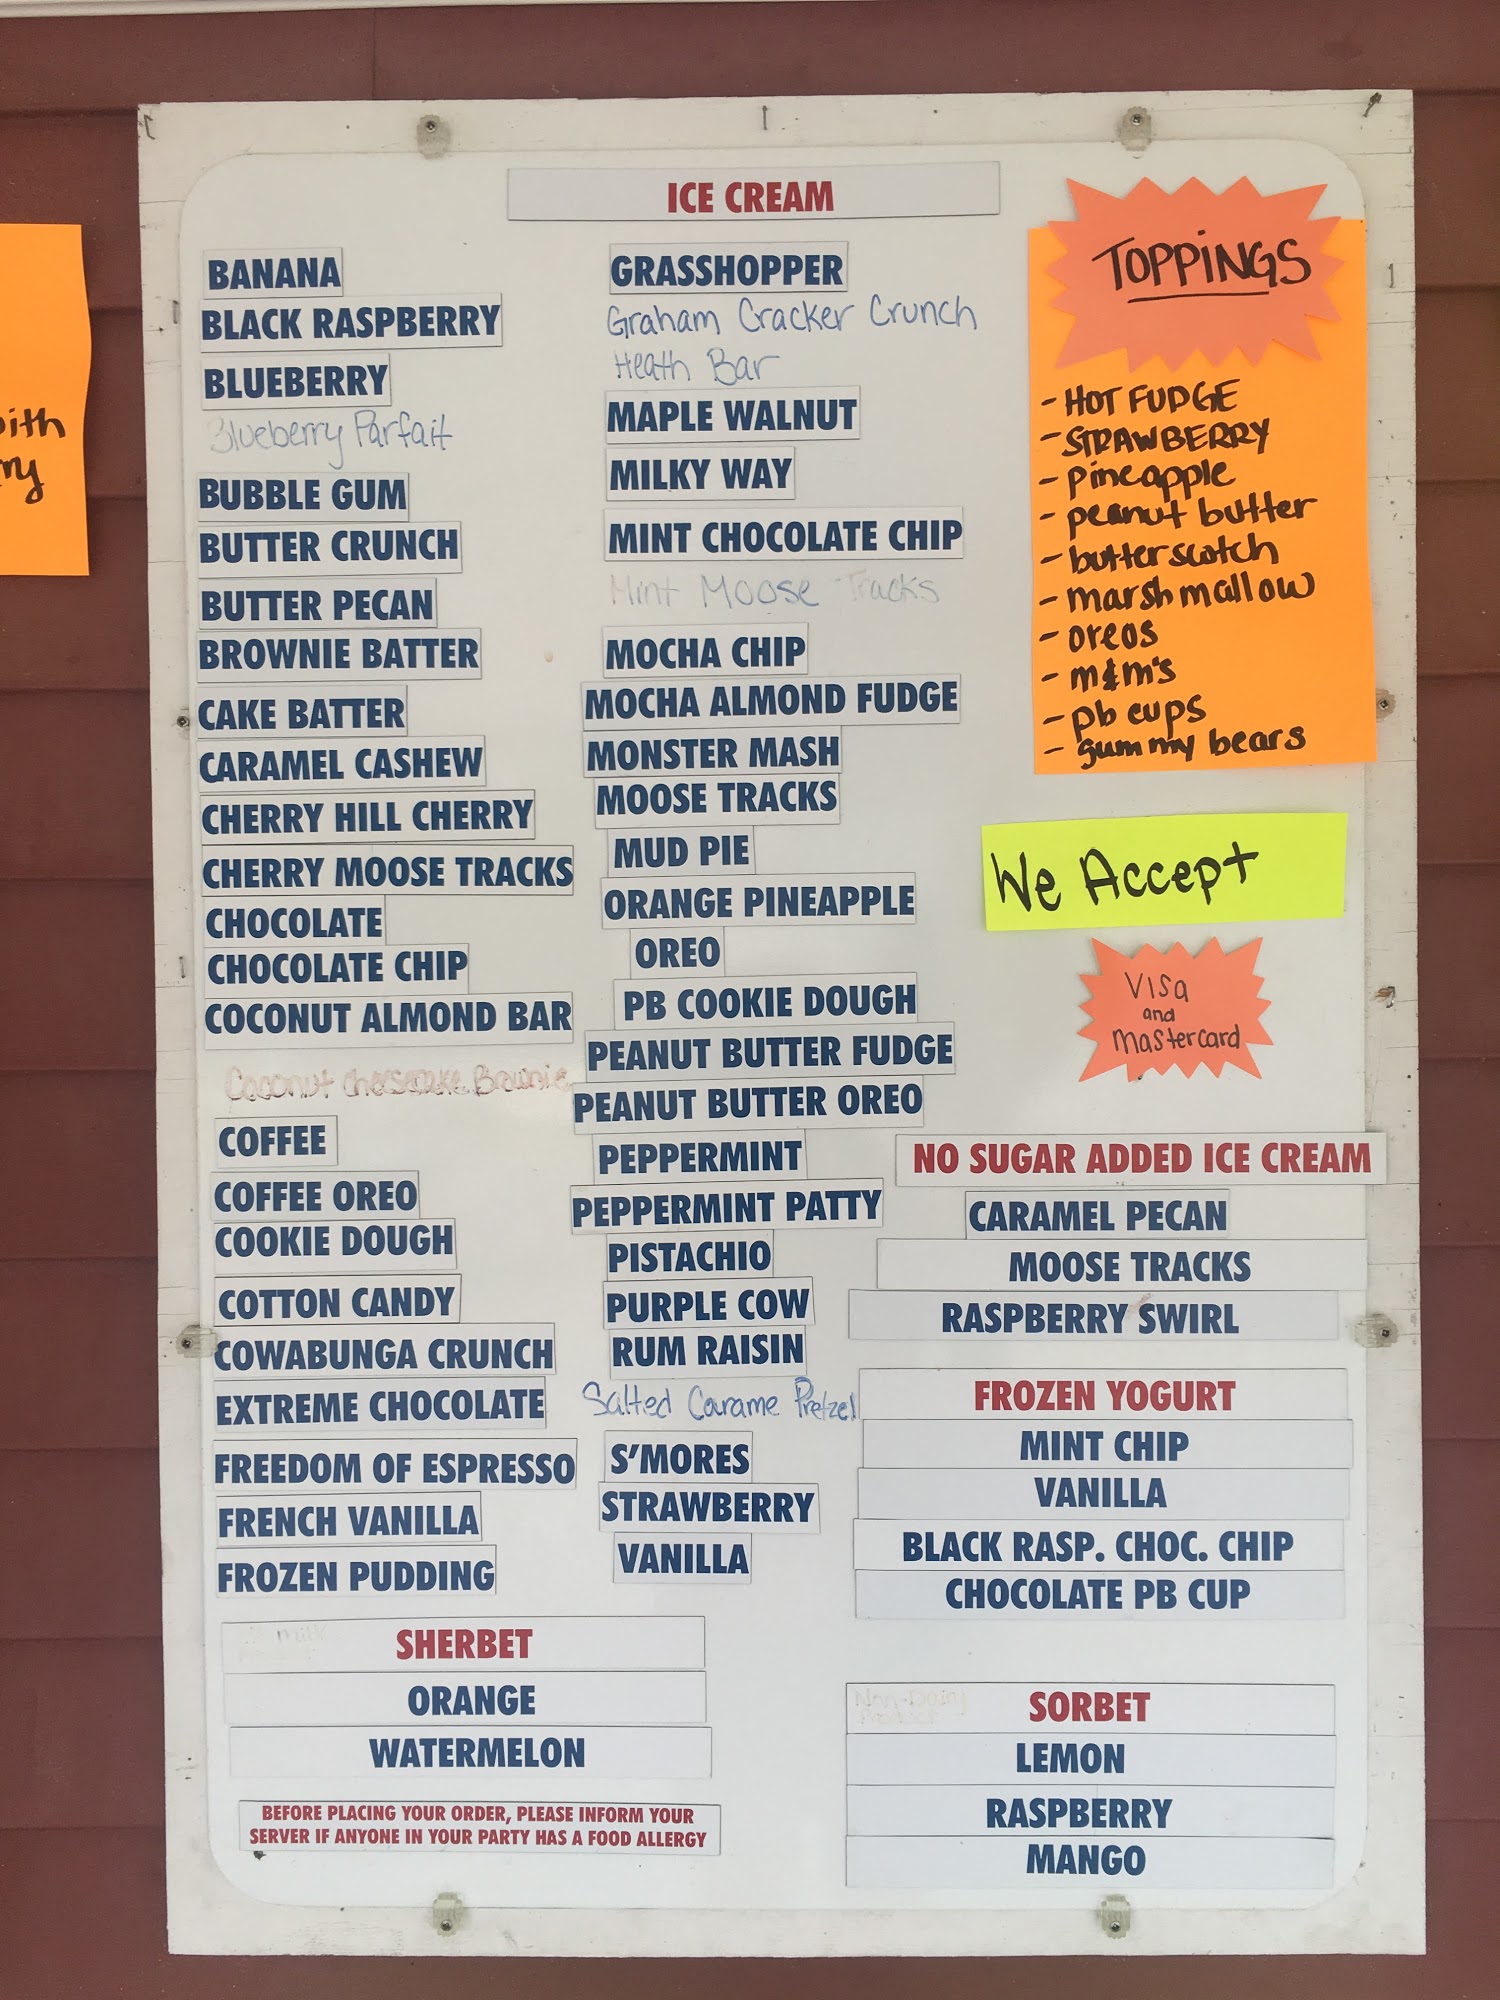 ICE CREAM
BANANA
BLACK RASPBERRY
BLUEBERRY
Blueberry Parfait
BUBBLE GUM
BUTTER CRUNCH
BUTTER PECAN
BROWNIE BATTER
CAKE BATTER
CARAMEL CASHEW
CHERRY HILL CHERRY
CHERRY MOOSE TRACKS
CHOCOLATE
CHOCOLATE CHIP
COCONUT ALMOND BAR
Coconut Cheesecake Brownie
COFFEE
COFFEE OREO
COOKIE DOUGH
COTTON CANDY
COWABUNGA CRUNCH
EXTREME CHOCOLATE
FREEDOM OF ESPRESSO
FRENCH VANILLA
FROZEN PUDDING
GRASSHOPPER
Graham Cracker Crunch
Heath Bar
MAPLE WALNUT
MILKY WAY
MINT CHOCOLATE CHIP
Mint Moose Tracks
MOCHA CHIP
MOCHA ALMOND FUDGE
MONSTER MASH
MOOSE TRACKS
MUD PIE
ORANGE PINEAPPLE
OREO
PB COOKIE DOUGH
PEANUT BUTTER FUDGE
PEANUT BUTTER OREO
PEPPERMINT
PEPPERMINT PATTY
PISTACHIO
PURPLE COW
RUM RAISIN
Salted Carame Pretzel
S'MORES
STRAWBERRY
VANILLA
TOPPINGS
- HOT FUDGE
- STRAWBERRY
- pineapple
- peanut butter
- butterscotch
- marshmallow
- oreos
- m&m's
- pb cups
- gummy bears
We Accept
Visa
and
mastercard
NO SUGAR ADDED ICE CREAM
CARAMEL PECAN
MOOSE TRACKS
RASPBERRY SWIRL
FROZEN YOGURT
MINT CHIP
VANILLA
BLACK RASP. CHOC. CHIP
CHOCOLATE PB CUP
SHERBET
ORANGE
WATERMELON
BEFORE PLACING YOUR ORDER, PLEASE INFORM YOUR
SERVER IF ANYONE IN YOUR PARTY HAS A FOOD ALLERGY
Non-Dairy
Product
SORBET
LEMON
RASPBERRY
MANGO